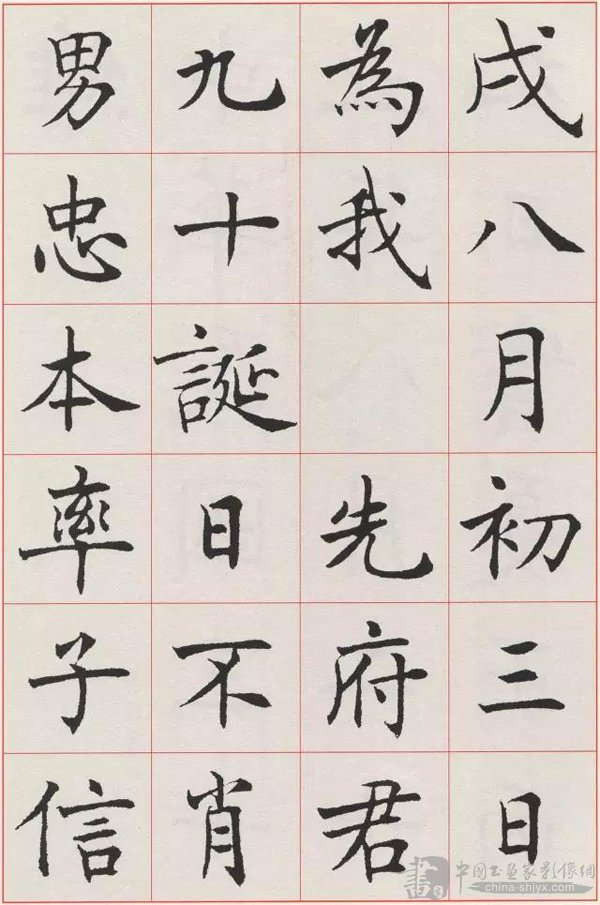 戌八月初三日
為我 先府君
九十誕日不肖
男忠本率子信
中国书画家影像網
china-shjyx.com